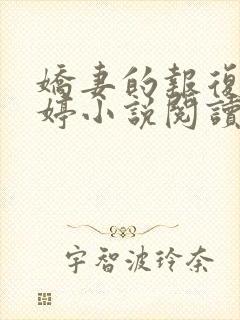 嬌妻的報復
婷小説閱讀
宇智波玲奈